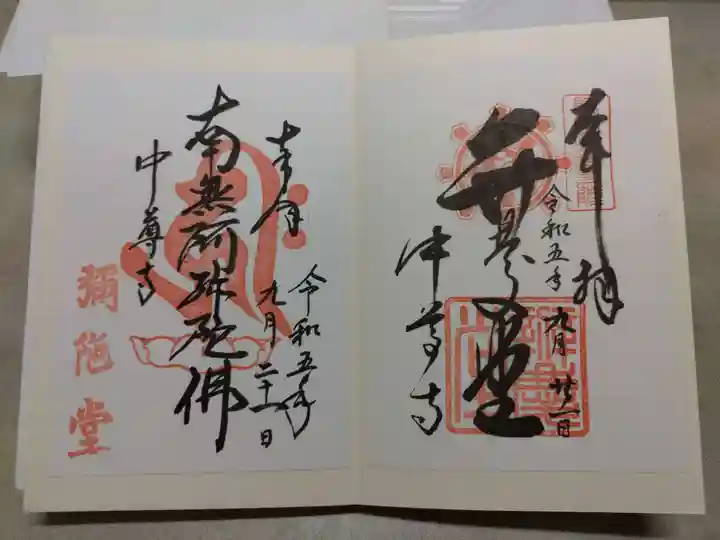 奉拝
令和五年 九月 廿一日
弁慶堂
中尊寺
奉拝
令和五年
九月 二十一日
南無阿弥陀佛
中尊寺
弥陀堂